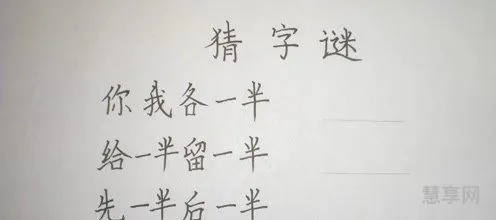 猜字谜
你我各一半
给一半留一半
先一半后一半
慧享网